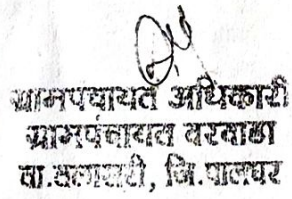 ग्रामपंचायत अधिकारी
ग्रामपंचायत वरवाडा
ता.तलासरी, जि.पालघर